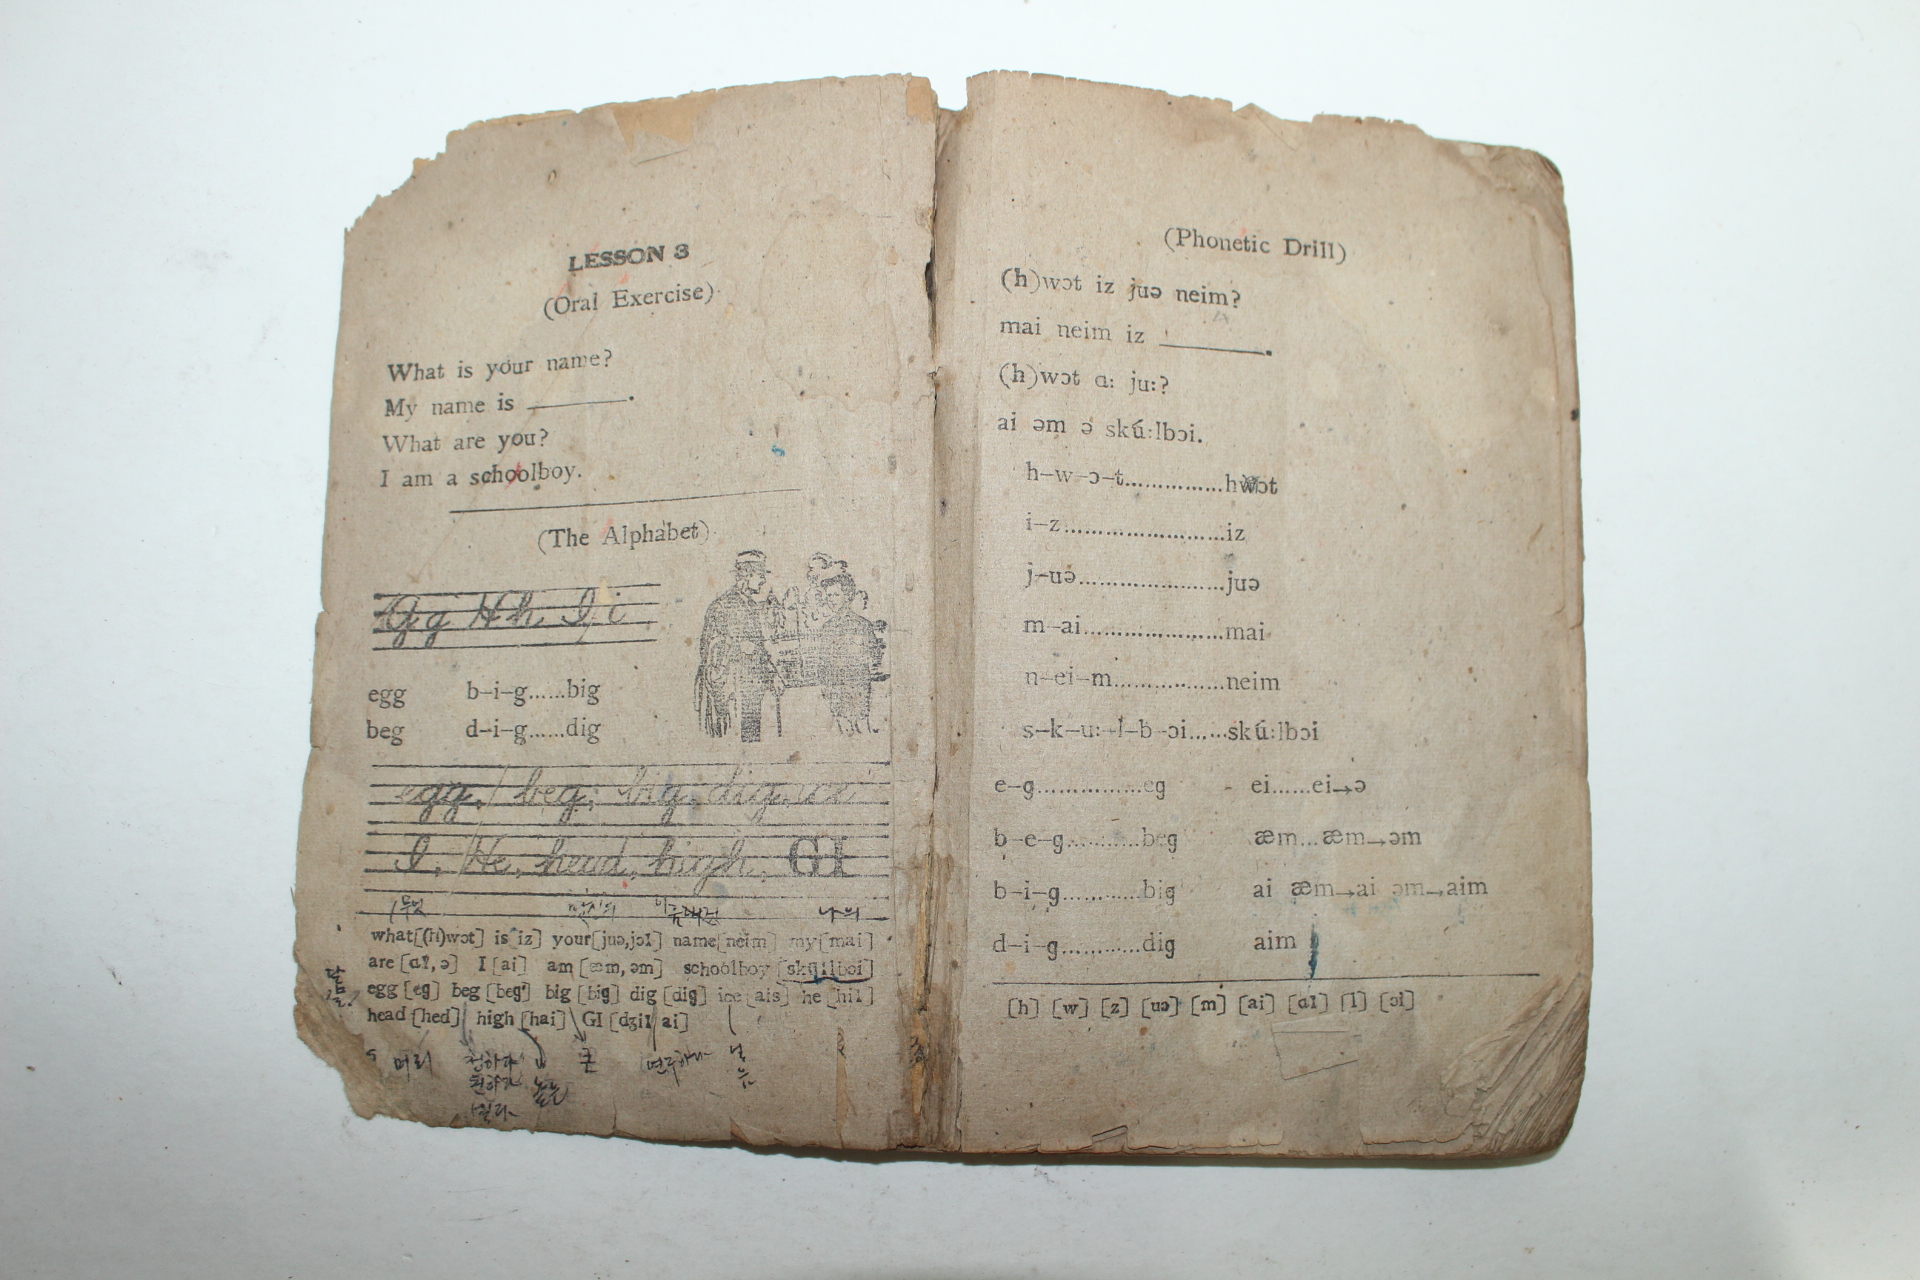 LESSON 3
(Oral Exercise)
What is your name?
My name is ________.
What are you?
I am a schoolboy.
(The Alphabet)
Gg Hh Ii
egg b–i–g......big
beg d–i–g......dig
egg, beg, big, dig,
I, He, head, high, GI
무엇 당신의 나의
what[(h)wɔt] is[iz] your[juə,jɔː] name[neim] my[mai]
are [ɑː, ə] I [ai] am [æm, əm] schoolboy [skúːlbɔi]
egg [eg] beg [beg] big [big] dig [dig] ice [ais] he [hiː]
head [hed] high [hai] GI [dʒiː ai]
머리 청하다
높은
(Phonetic Drill)
(h)wɔt iz juə neim?
mai neim iz ________.
(h)wɔt ɑː juː?
ai əm ə skúːlbɔi.
h–w–ɔ–t...............hwɔt
i–z........................iz
j–uə......................juə
m–ai.....................mai
n–ei–m.................neim
s–k–uː–l–b–ɔi......skúːlbɔi
e–g...............eg ei......ei→ə
b–e–g...........beg æm...æm→əm
b–i–g............big ai æm→ai əm→aim
d–i–g............dig aim
[h] [w] [z] [uə] [m] [ai] [ɑː] [l] [ɔi]